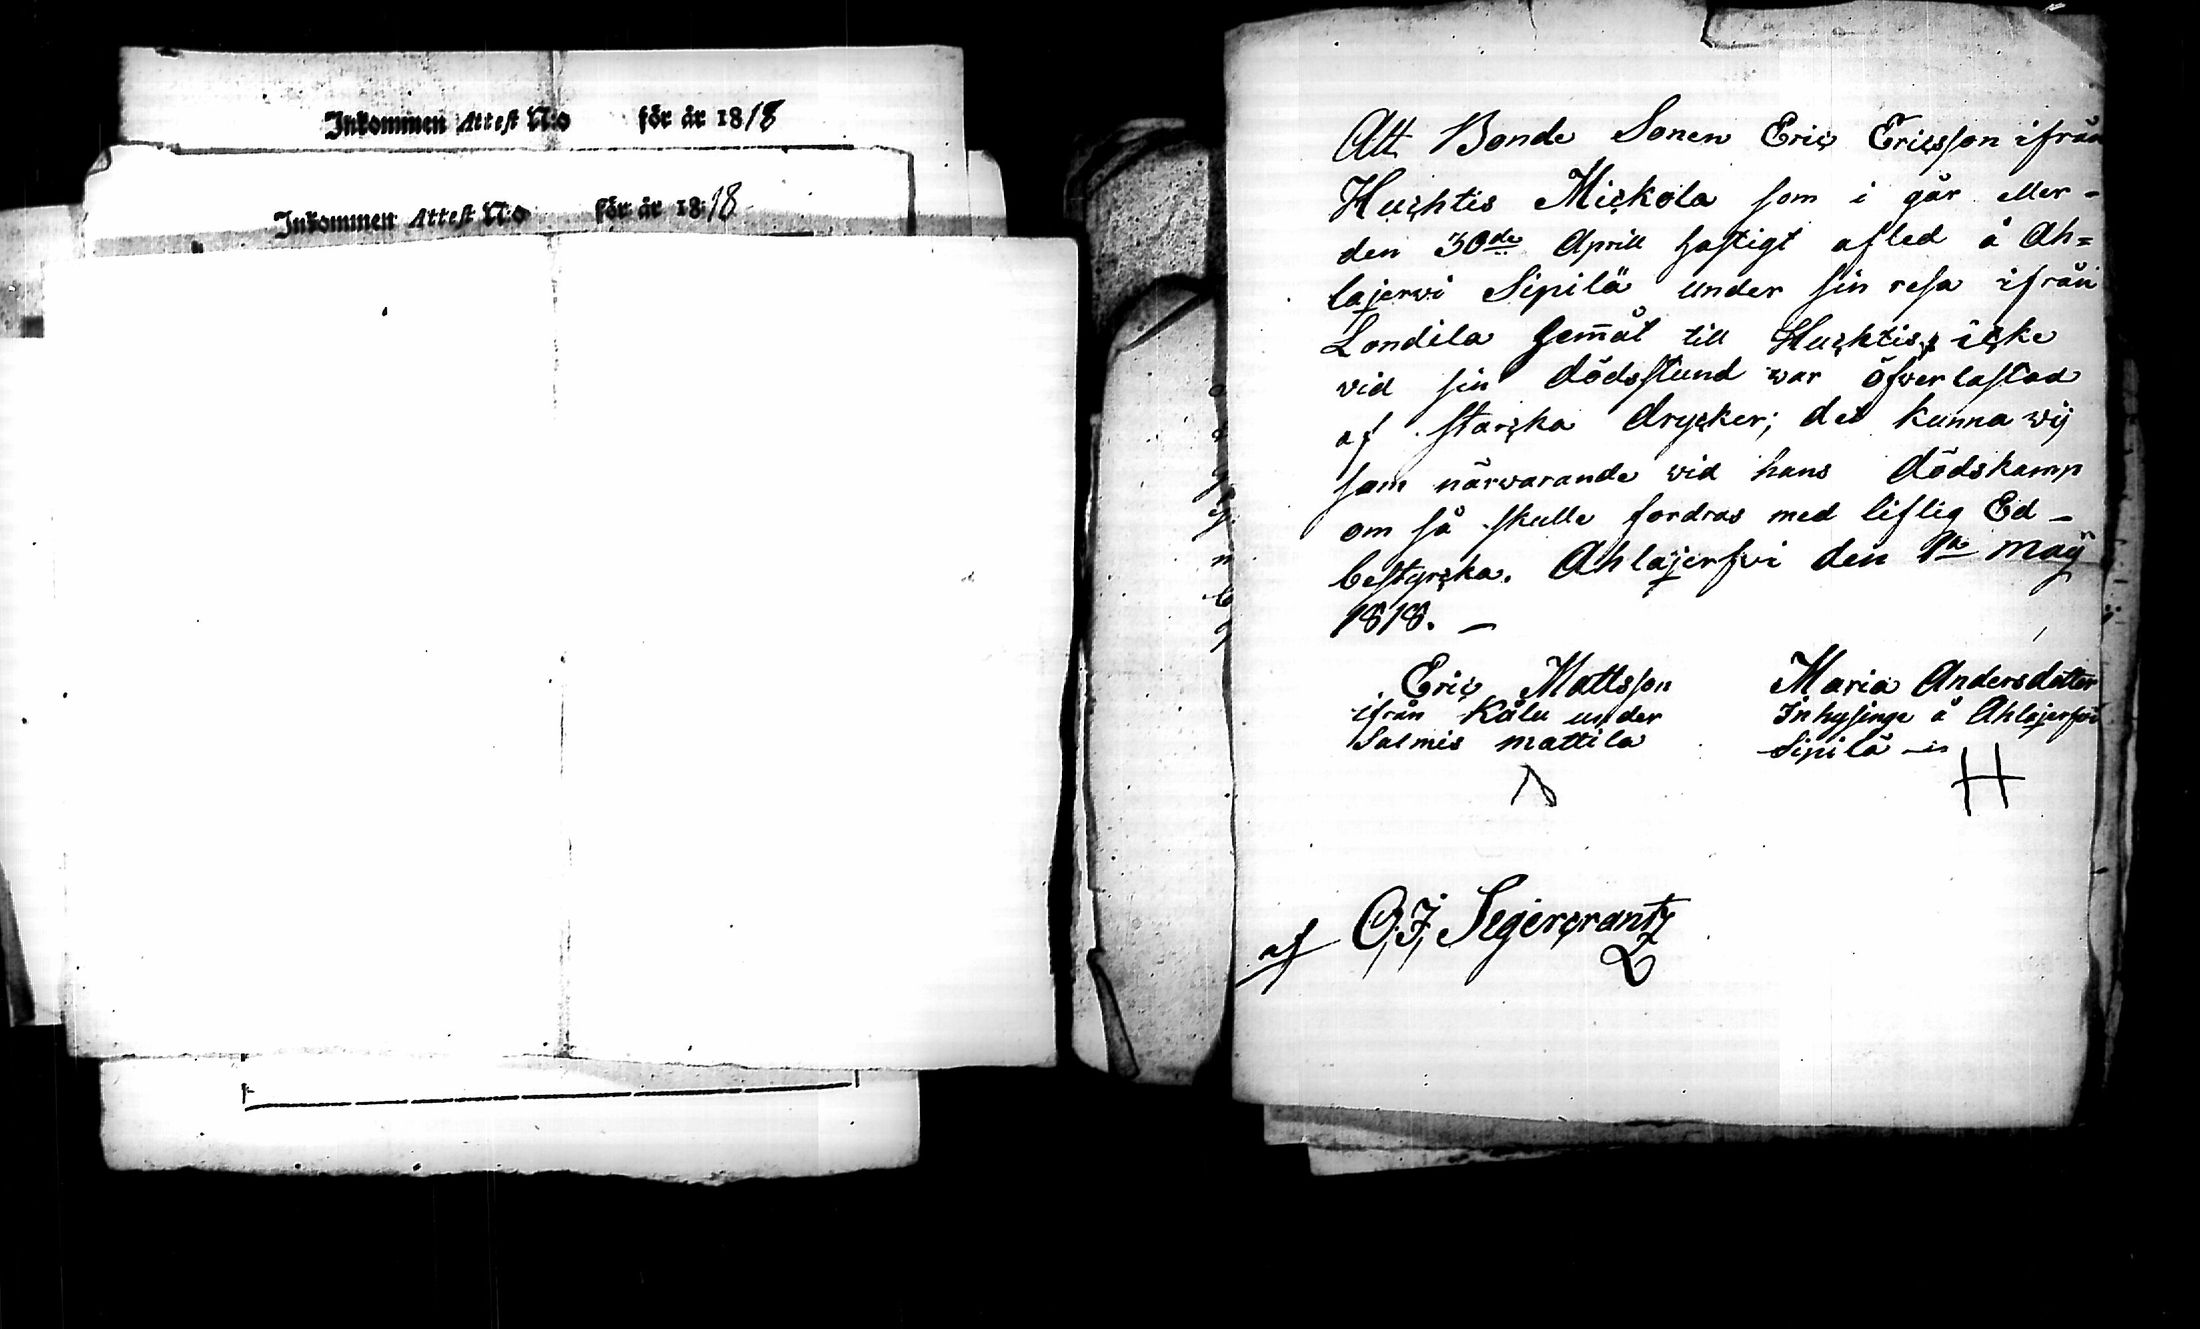 Inkommen Attest N:o för år 1818
Inkommen Attest N:o för år 1818
Att Bonde Sonen Eric Ericsson ifrån
Huchtis Mickola som i går eller -
den 30de Aprill hastigt afled å Ah=
lajerwi Sipilä under sin resa ifrån
Londila hem̄åt till Huchtis, icke
vid sin dödsstund war öfwerlastad
af starcka drycker; det kunna wij
som närwarande vid hans dödskamp
om så skulle fordras med liflig Ed -
bestyrcka. Ahlajerfwi den 1a Maij
1818. -
Eric Mattsson
ifrån Kålu under
Salmis Mattila
Maria Andersdotter
Inhysinge å Ahlajerfwi
Sipilä
af O. J. Segercrantz